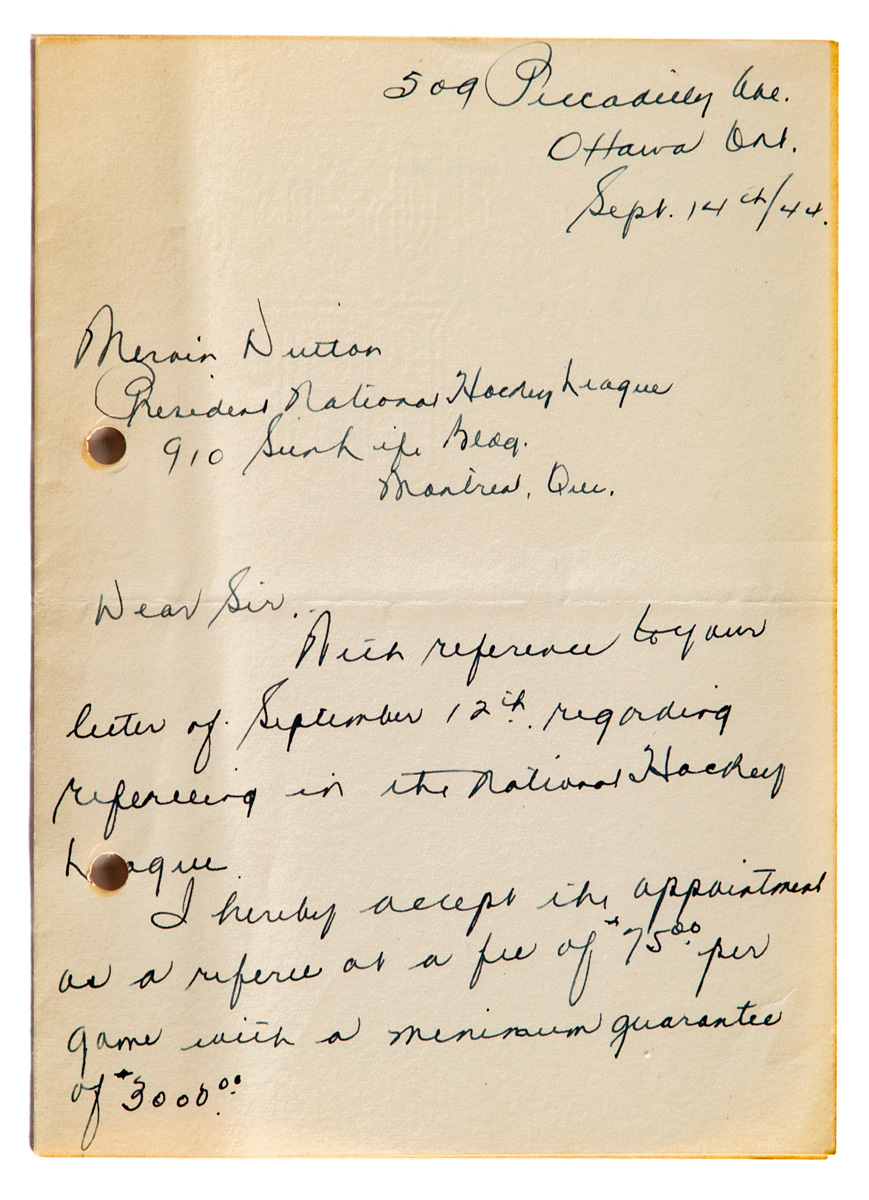 509 Piccadilly Ave.
Ottawa Ont.
Sept. 14th/44.
Mervin Dutton
President National Hockey League
910 Sun Life Bldg.
Montreal, Que.
Dear Sir.
With reference to your
letter of September 12th. regarding
refereeing in the National Hockey
League
I hereby accept the appointment
as a referee at a fee of $75.00 per
game with a minimum guarantee
of $3000.00